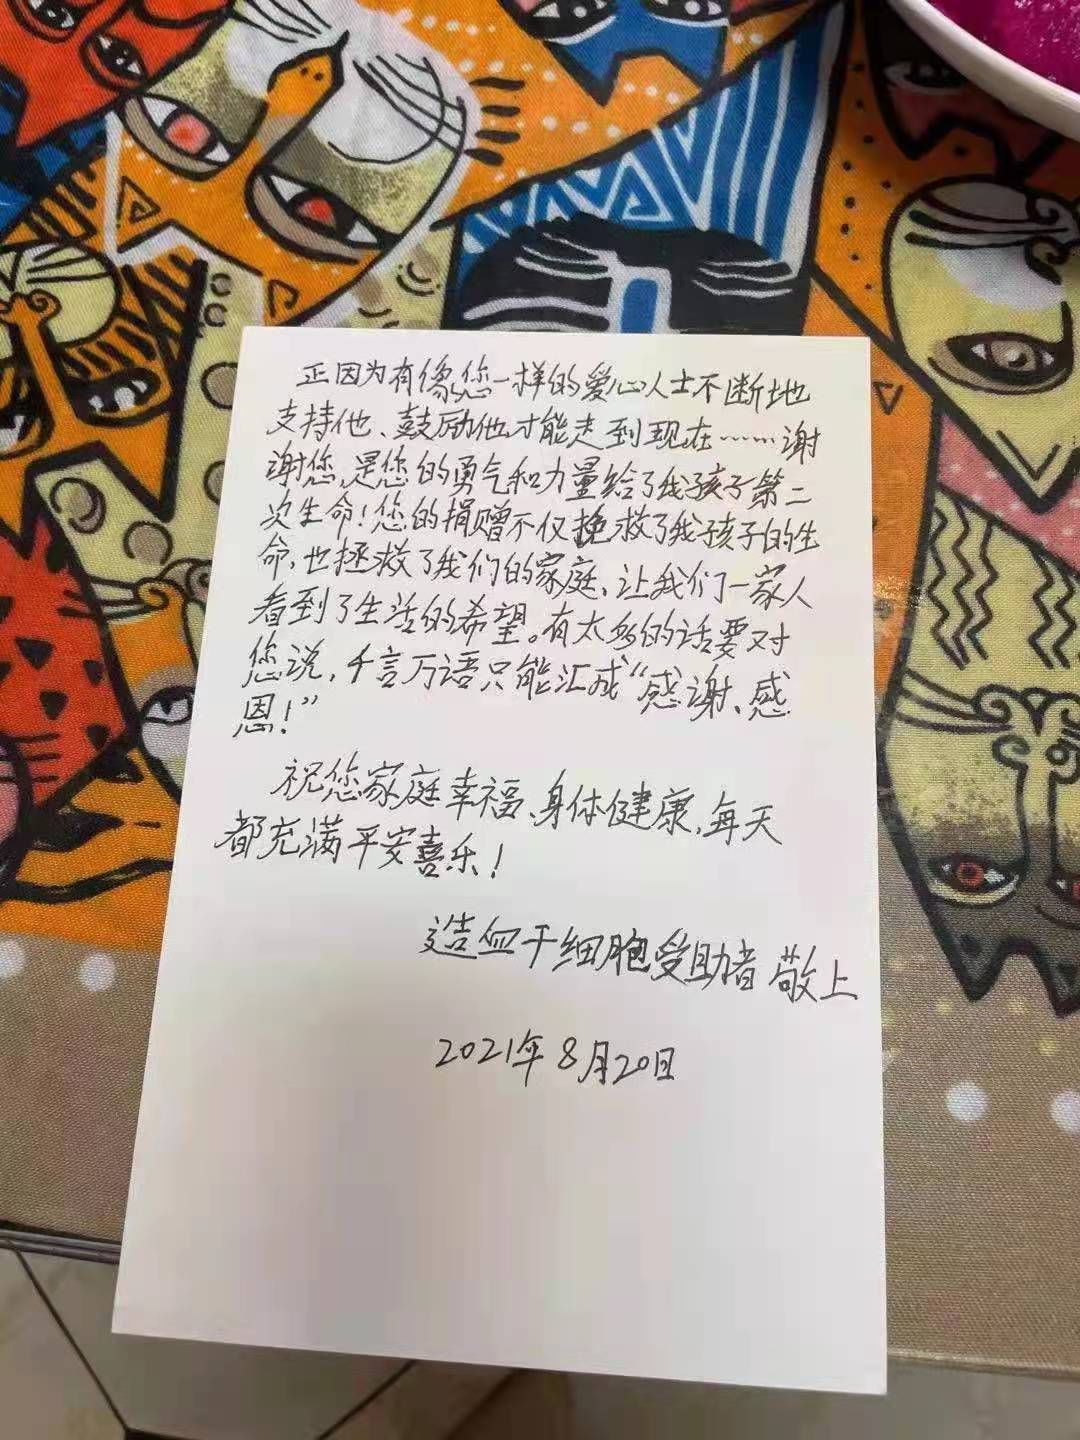 正因为有像您一样的爱心人士不断地
支持他、鼓励他才能走到现在……谢
谢您,是您的勇气和力量给了我孩子第二
次生命!您的捐赠不仅挽救了我孩子的生
命,也拯救了我们的家庭、让我们一家人
看到了生活的希望。有太多的话要对
您说,千言万语只能汇成“感谢、感
恩!”
祝您家庭幸福、身体健康,每天
都充满平安喜乐!
造血干细胞受助者 敬上
2021年8月20日